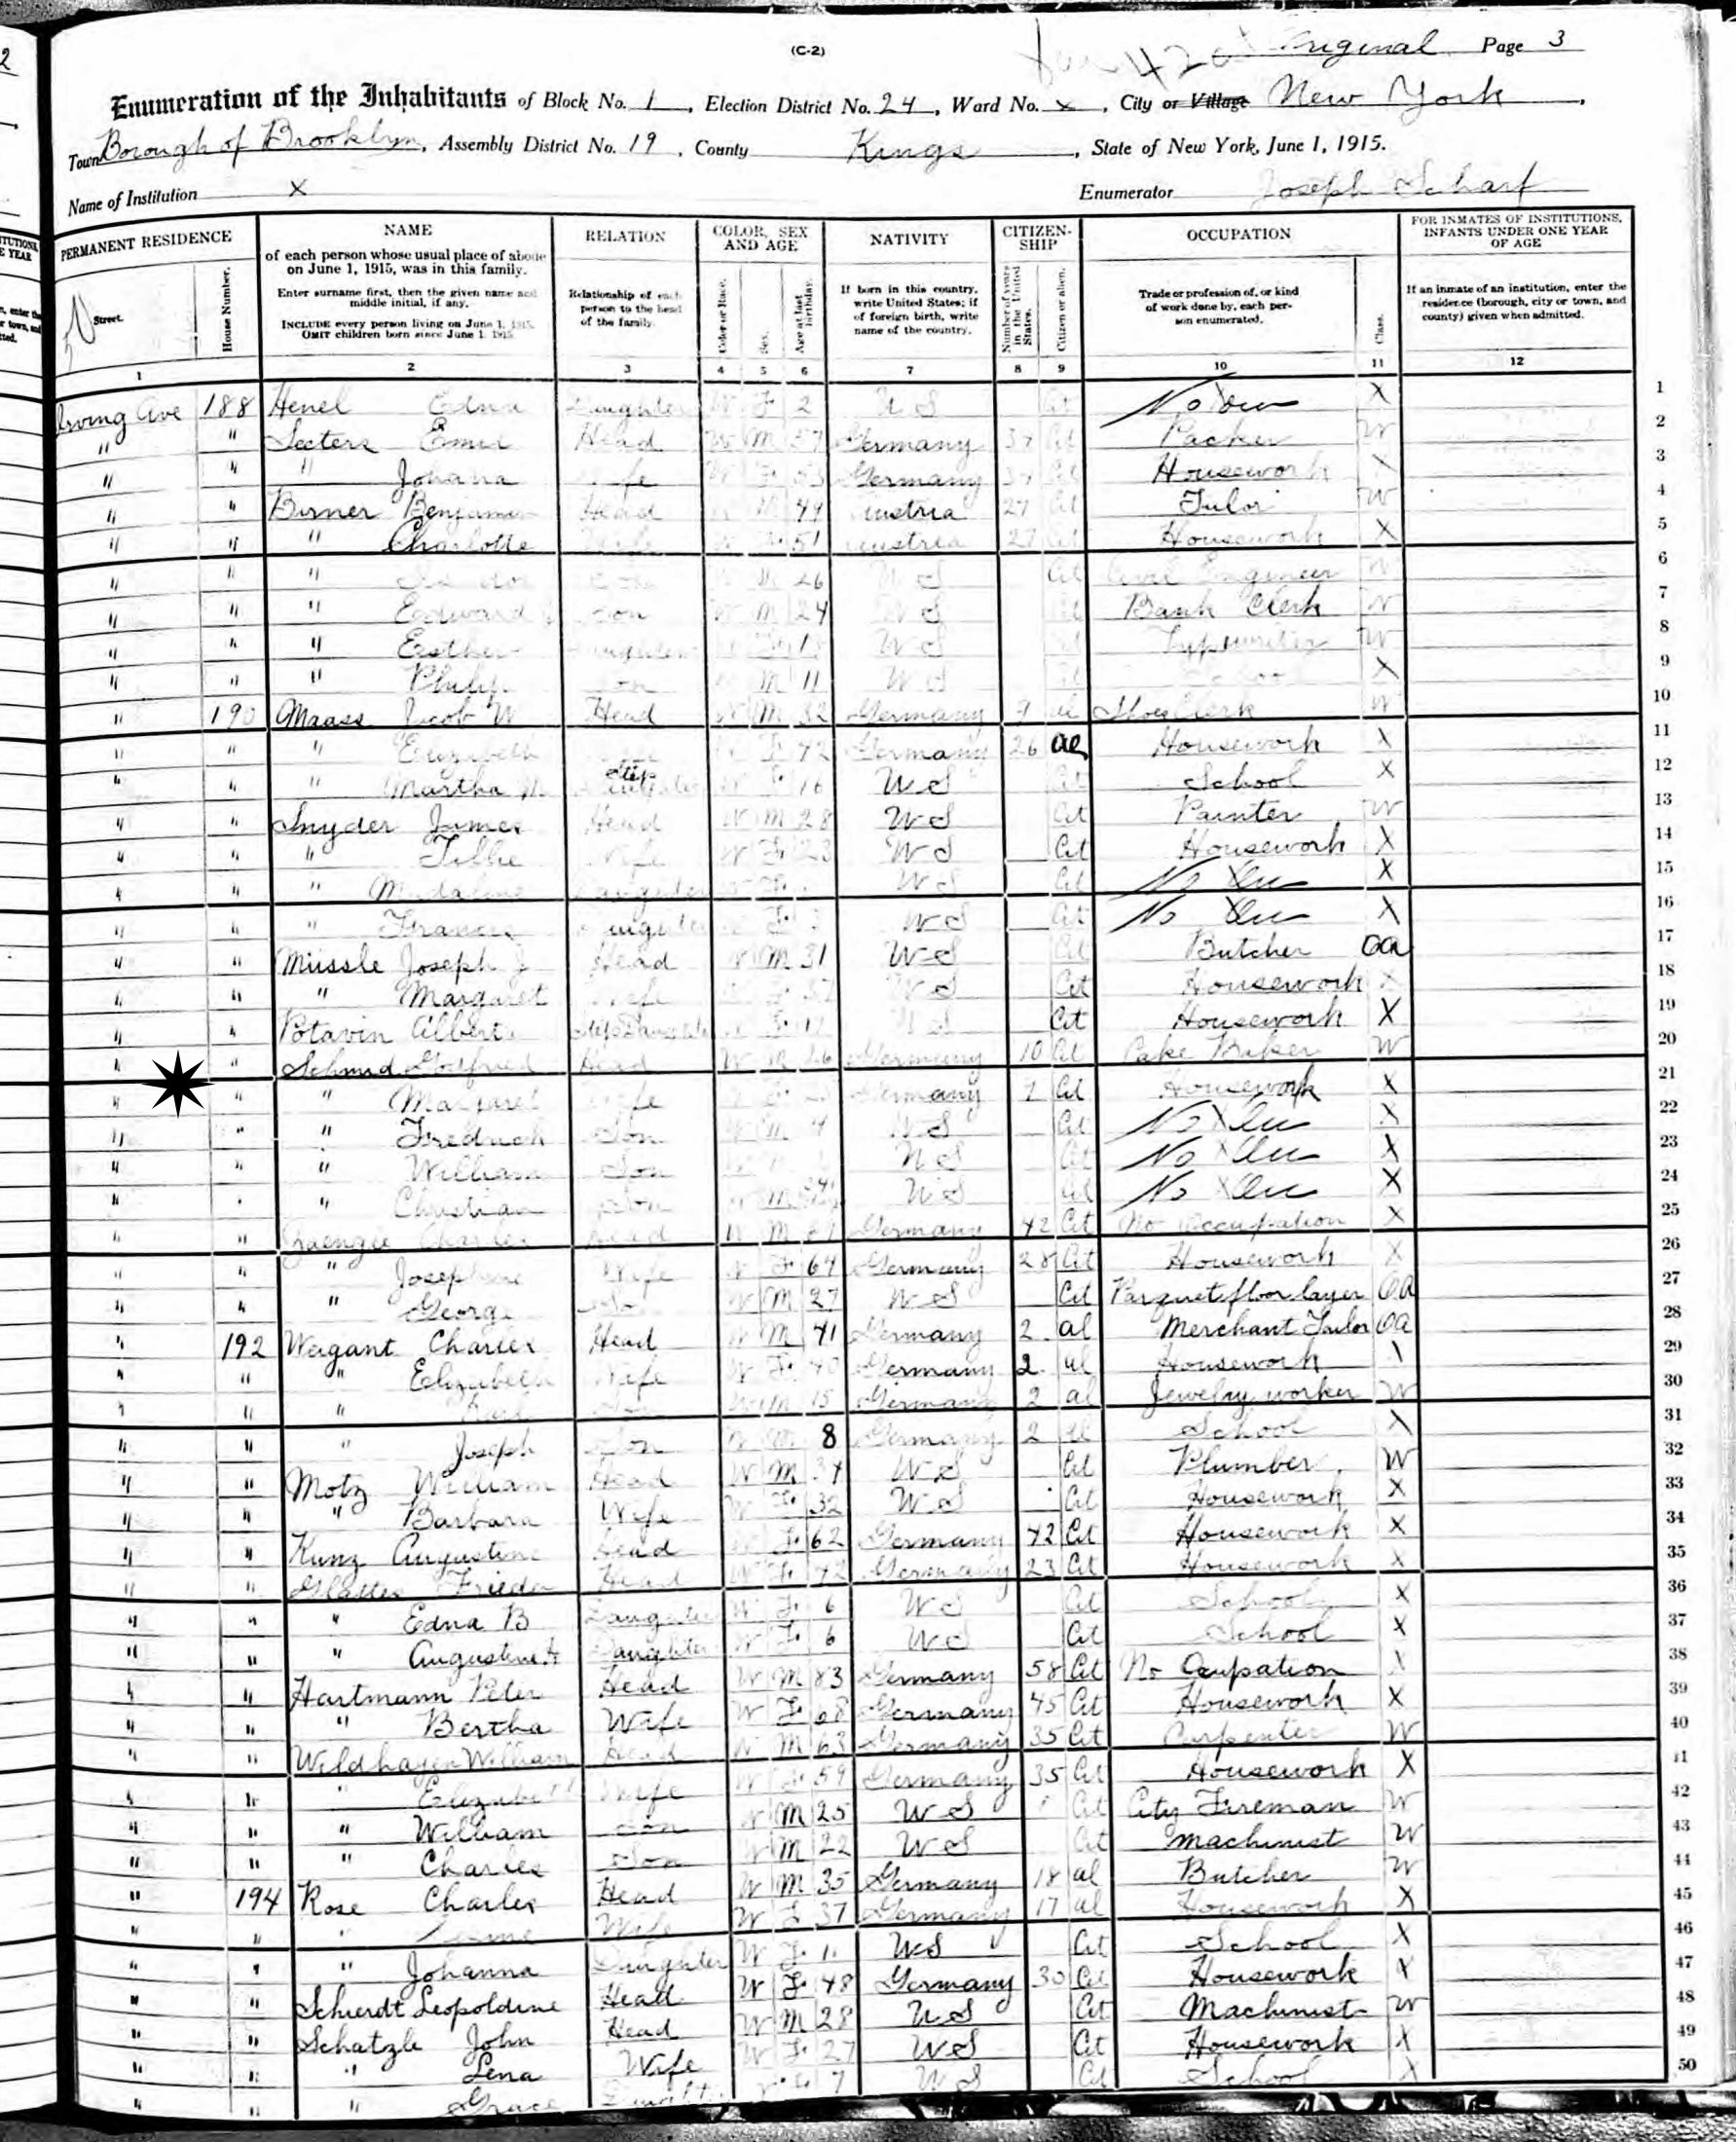 2
(C-2)
Original Page 3
Enumeration of the Inhabitants of Block No. 1, Election District No. 24, Ward No. x, City or Village New York,
Town Borough of Brooklyn, Assembly District No. 19, County Kings, State of New York, June 1, 1915.
Name of Institution X Enumerator Joseph Scharf
PERMANENT RESIDENCE
Street.
House Number.
1
NAME
of each person whose usual place of abode
on June 1, 1915, was in this family.
Enter surname first, then the given name and
middle initial, if any.
INCLUDE every person living on June 1, 1915.
OMIT children born since June 1, 1915.
2
RELATION
Relationship of each
person to the head
of the family.
3
COLOR, SEX
AND AGE
Color or Race.
Sex.
Age at last birthday.
4 5 6
NATIVITY
If born in this country,
write United States; if
of foreign birth, write
name of the country.
7
CITIZEN-
SHIP
Number of years in the United States.
Citizen or alien.
8 9
OCCUPATION
Trade or profession of, or kind
of work done by, each per-
son enumerated.
Class.
10 11
FOR INMATES OF INSTITUTIONS,
INFANTS UNDER ONE YEAR
OF AGE
If an inmate of an institution, enter the
residence (borough, city or town, and
county) given when admitted.
12
Irving Ave 188 Henel Edna Daughter W F 2 U S Cit X 1
" " Emil Head W M 57 Germany Cit Packer W 2
" " " Johana Wife W F 53 Germany Cit Housework 3
" " Birner Benjamin Head W M 49 Austria 27 Cit Tailor W 4
" " " Charlotte Wife W F 51 Austria 27 Cit Housework X 5
" " " Son W M 26 U S Cit Civil Engineer W 6
" " " Edward Son W M 24 U S Cit Bank Clerk W 7
" " " Esther Daughter W F U S Cit Typewriter W 8
" " " Philip Son W M 11 U S Cit School X 9
" 190 Maass Jacob W Head W M 32 Germany 7 al Shoe Clerk W 10
" " " Elizabeth F 42 Germany 26 al Housework X 11
" " " Martha M Step Daughter W F 16 U S Cit School X 12
" " Snyder James Head W M 28 U S Cit Painter W 13
" " " Tillie Wife W F 23 U S Cit Housework X 14
" " " Madaline Daughter U S Cit X 15
" " " Frances Daughter F 3 U S Cit X 16
" " Müssle Joseph J Head W M 31 U S Cit Butcher OA 17
" " " Margaret Wife F 37 U S Cit Housework X 18
" " Potavin Step Daughter F 17 U S Cit Housework X 19
" " Schmid Gottfried Head W M 26 Germany 10 Cit Cake Baker W 20
" " " Margaret Wife F Germany 7 Cit Housework X 21
" " " Fredrick Son W M 4 U S Cit X 22
" " " William Son U S Cit X 23
" " " Christian Son W M U S Cit X 24
" " Charles Head W M Germany 42 Cit No Occupation X 25
" " " Josephine Wife W F 64 Germany 28 Cit Housework X 26
" " " George Son W M 27 U S Cit Parquet floor layer OA 27
" 192 Weigant Charles Head W M 41 Germany 2 al Merchant Tailor OA 28
" " " Elizabeth Wife W F 40 Germany 2 al Housework 29
" " " Karl Son W M 15 Germany 2 al Jewelry worker W 30
" " " Joseph Son W M 8 Germany 2 al School X 31
" " Motz William Head W M 34 U S Cit Plumber W 32
" " " Barbara Wife W F 32 U S Cit Housework X 33
" " Kunz Augustine Head W F 62 Germany 42 Cit Housework X 34
" " Frieda Head W F 42 Germany 23 Cit Housework X 35
" " " Edna B Daughter W F 6 U S Cit School X 36
" " " Augustine Daughter W F 6 U S Cit School X 37
" " Hartmann Peter Head W M 83 Germany 58 Cit No Ocupation X 38
" " " Bertha Wife W F 68 Germany 45 Cit Housework X 39
" " Wildhagen William Head W M 63 Germany 35 Cit Carpenter W 40
" " " Elizabeth Wife W F 59 Germany 35 Cit Housework X 41
" " " William Son W M 25 U S Cit City Fireman W 42
" " " Charles Son W M 22 U S Cit Machinist W 43
" 194 Rose Charles Head W M 35 Germany 18 al Butcher W 44
" " " Wife W F 37 Germany 17 al Housework X 45
" " " Johanna Daughter W F U S Cit School X 46
" " Leopoldine Head W F 48 Germany 30 Cit Housework X 47
" " Schatzle John Head W M 28 U S Cit Machinist W 48
" " " Lena Wife W F 27 U S Cit Housework X 49
" " " Grace Daught 7 U S Cit School X 50